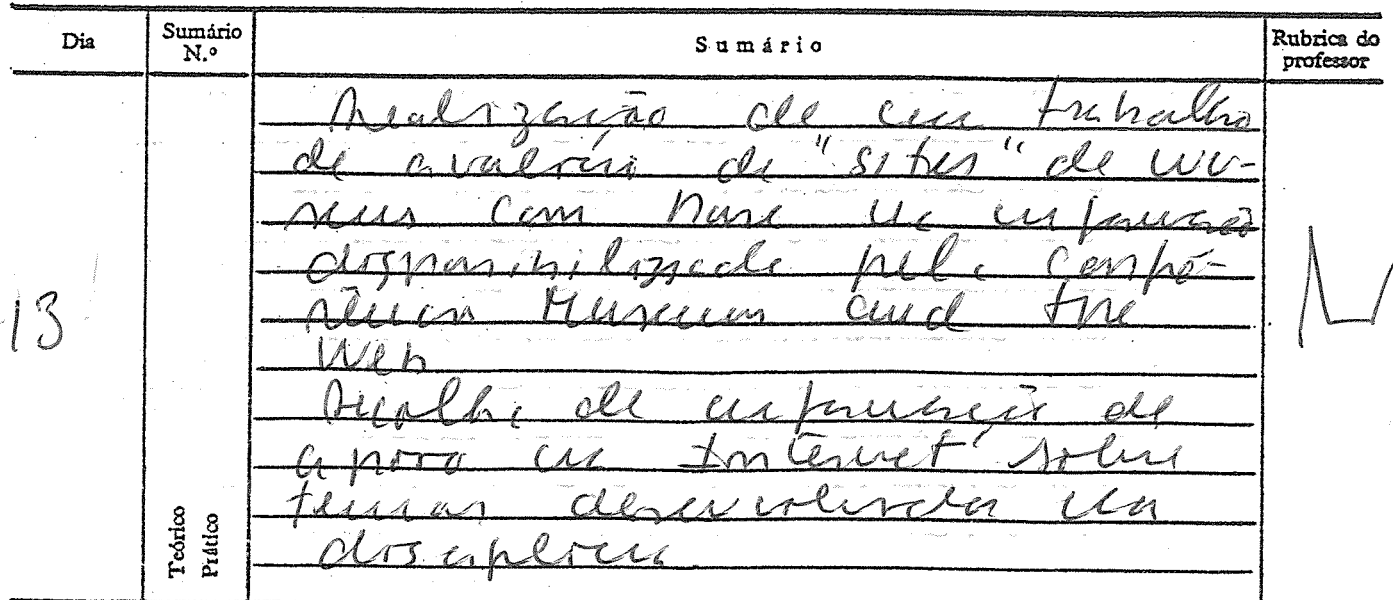 Dia
Sumário N.º
Sumário
Rubrica do professor
13
Teórico
Prático
Realização de um trabalho
de avaliação de "sites" de mu-
seus com base na informação
disponibilizada pela confe-
rência Museum and the
Web
Recolha de informação de
apoio na Internet sobre
temas desenvolvidos na
disciplina